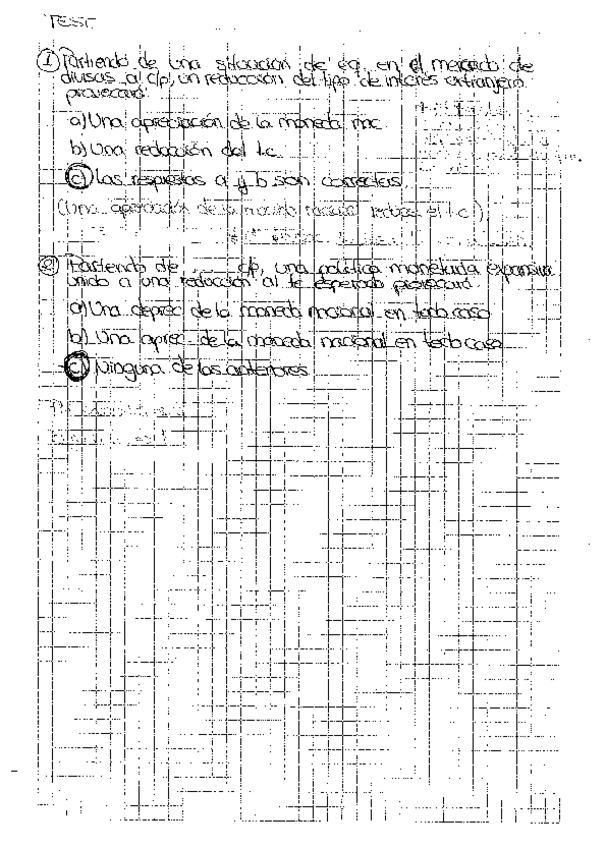 TEST
① Partiendo de una situación de eq. en el mercado de
divisas al c/p, un reducción del tipo de interés extranjero
provocará:
a) Una apreciación de la moneda nac
b) Una reducción del t.c.
c) Las respuestas a y b son correctas.
(Una apreciación de la moneda nacional reduce el t.c.)
② Partiendo de ...... c/p, una política monetaria expansiva
unido a una reducción al tc esperado provocará:
a) Una deprec de la moneda nacional en todo caso
b) Una aprec. de la moneda nacional en todo caso
c) Ninguna de las anteriores